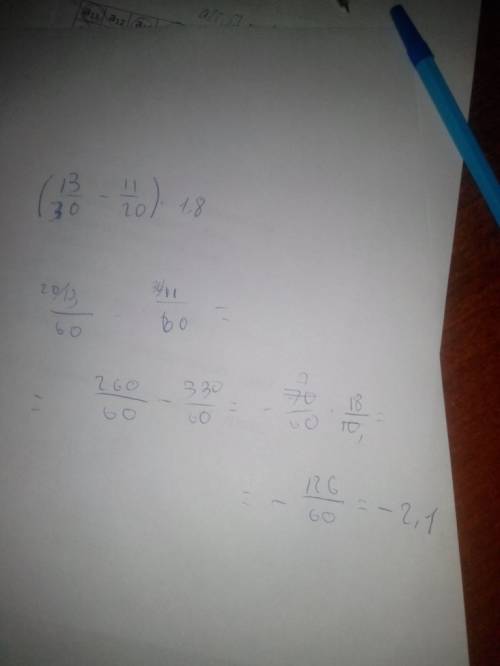 a₂₁ a₂₂
(13/30 - 11/20) · 1.8
20/13/60 - 30/11/60 =
= 260/60 - 330/60 = - 7 70/60 · 18/10, =
= - 126/60 = - 2,1